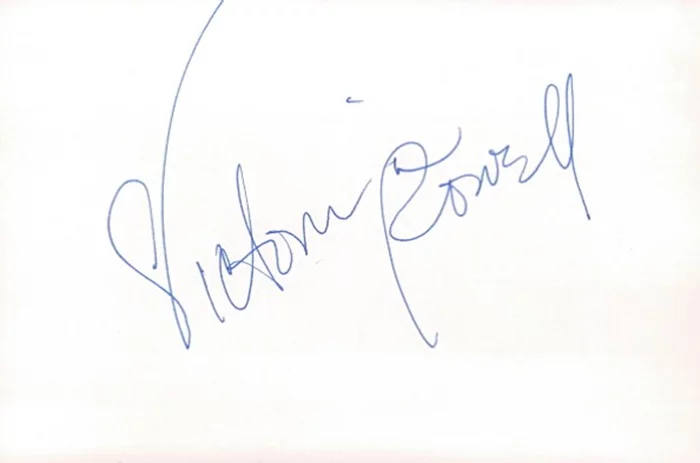 Victoria Rowell